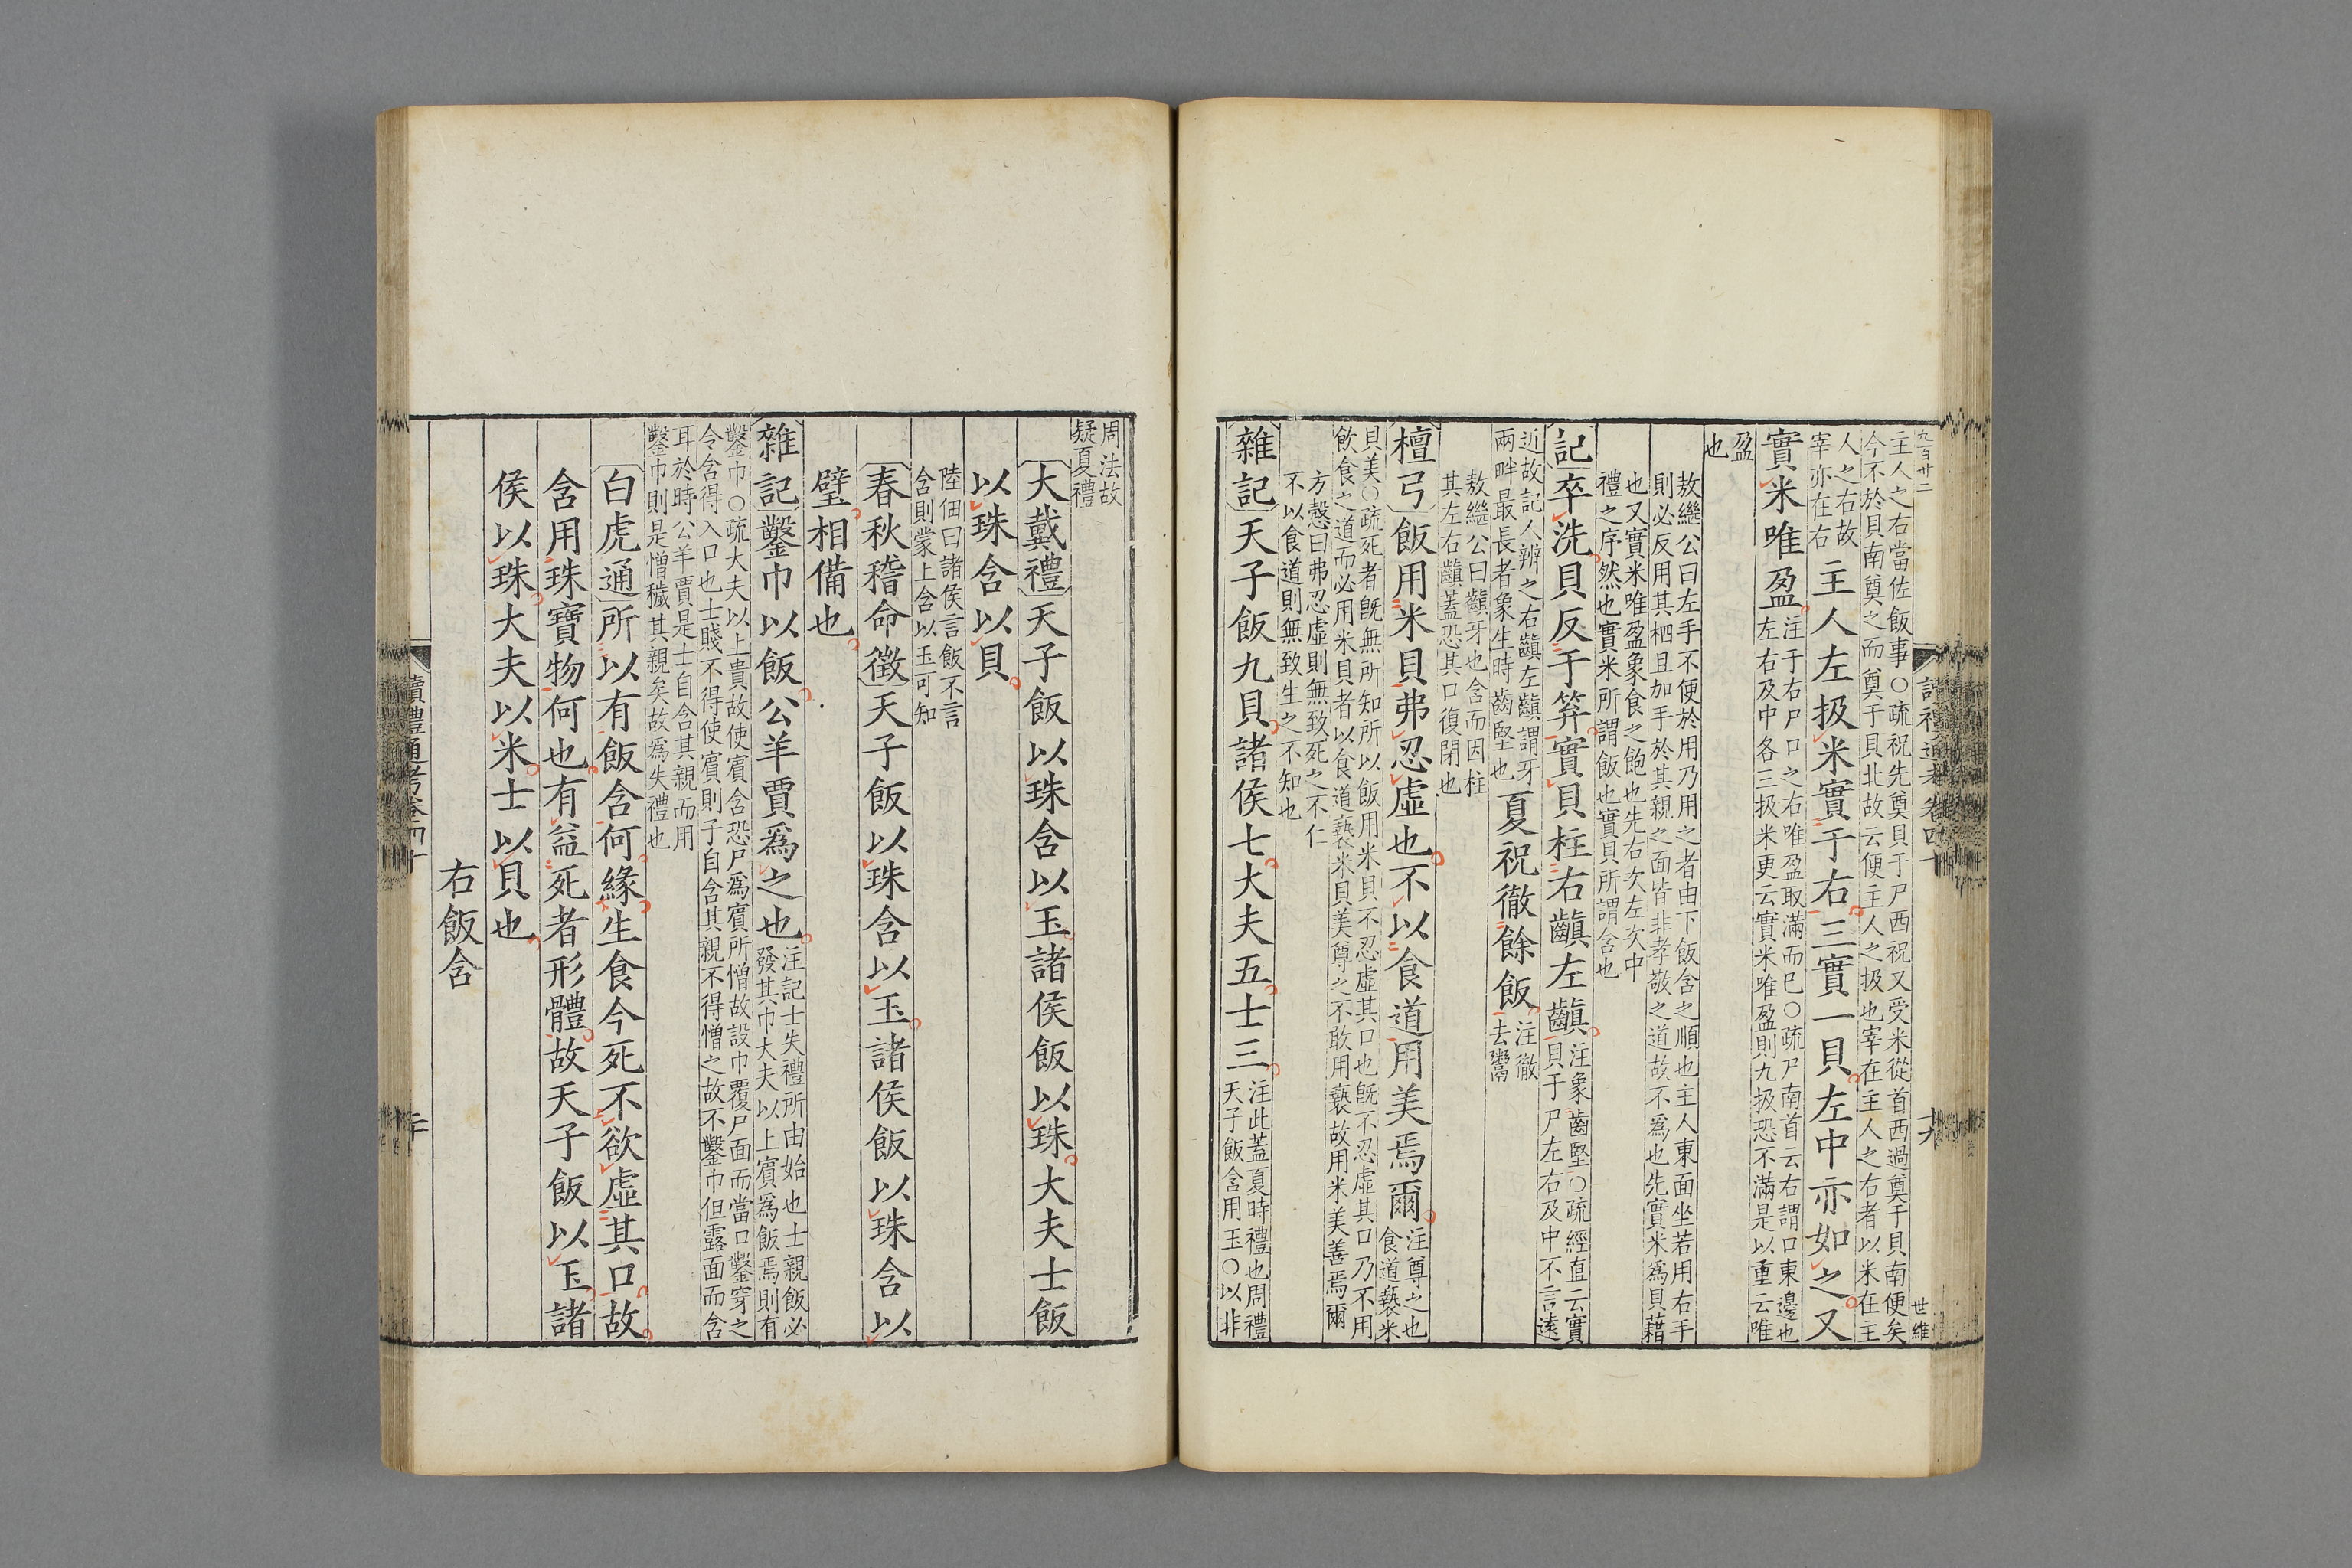 九百廿二
主人之右當佐飯事○疏祝先奠貝于尸西祝又受米從首西過奠于貝南便矣
今不於貝南奠之而奠于貝北故云便主人之扱也宰在主人之右者以米在主
人之右故
宰亦在右
主人左扱米實于右三實一貝左中亦如之又
實米唯盈
注于右尸口之右唯盈取滿而已○疏尸南首云右謂口東邊也
左右及中各三扱米更云實米唯盈則九扱恐不滿是以重云唯
盈
也
敖繼公曰左手不便於用乃用之者由下飯含之順也主人東面坐若用右手
則必反用其柶且加手於其親之面皆非孝敬之道故不爲也先實米爲貝藉
也又實米唯盈象食之飽也先右次左次中
禮之序然也實米所謂飯也實貝所謂含也
記卒洗貝反于笲實貝柱右齻左齻
注象齒堅○疏經直云實
貝于尸左右及中不言遠
近故記人辨之右齻左齻謂牙
兩畔最長者象生時齒堅也
夏祝徹餘飯
注徹
去鬻
敖繼公曰齻牙也含而因柱
其左右齻蓋恐其口復閉也
檀弓飯用米貝弗忍虛也不以食道用美焉爾
注尊之也
食道褻米
貝美○疏死者旣無所知所以飯用米貝不忍虛其口也旣不忍虛其口乃不用
飲食之道而必用米貝者以食道褻米貝美尊之不敢用褻故用米美善焉爾
方慤曰弗忍虛則無致死之不仁
不以食道則無致生之不知也
雜記天子飯九貝諸侯七大夫五士三
注此蓋夏時禮也周禮
天子飯含用玉○以非
讀禮通考卷四十
十九
世維
周法故
疑夏禮
大戴禮天子飯以珠含以玉諸侯飯以珠大夫士飯
以珠含以貝
陸佃曰諸侯言飯不言
含則蒙上含以玉可知
春秋稽命徵天子飯以珠含以玉諸侯飯以珠含以
璧相備也
雜記鑿巾以飯公羊賈爲之也
注記士失禮所由始也士親飯必
發其巾大夫以上賓爲飯焉則有
鑿巾○疏大夫以上貴故使賓含恐尸爲賓所憎故設巾覆尸面而當口鑿穿之
令含得入口也士賤不得使賓則子自含其親不得憎之故不鑿巾但露面而含
耳於時公羊賈是士自含其親而用
鑿巾則是憎穢其親矣故爲失禮也
白虎通所以有飯含何緣生食今死不欲虛其口故
含用珠寶物何也有益死者形體故天子飯以玉諸
侯以珠大夫以米士以貝也
右飯含
讀禮通考卷四十
二十